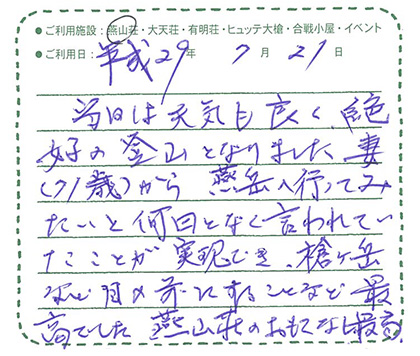 ●ご利用施設：燕山荘・大天荘・有明荘・ヒュッテ大槍・合戦小屋・イベント
●ご利用日：平成29年 7月 21日
当日は天気も良く、絶
好の登山となりました。妻
（71歳）から 燕岳へ行ってみ
たいと何回となく言われてい
たことが実現でき、槍ヶ岳
など目の前にすることなど 最
高でした 燕山荘のおもてなし最高